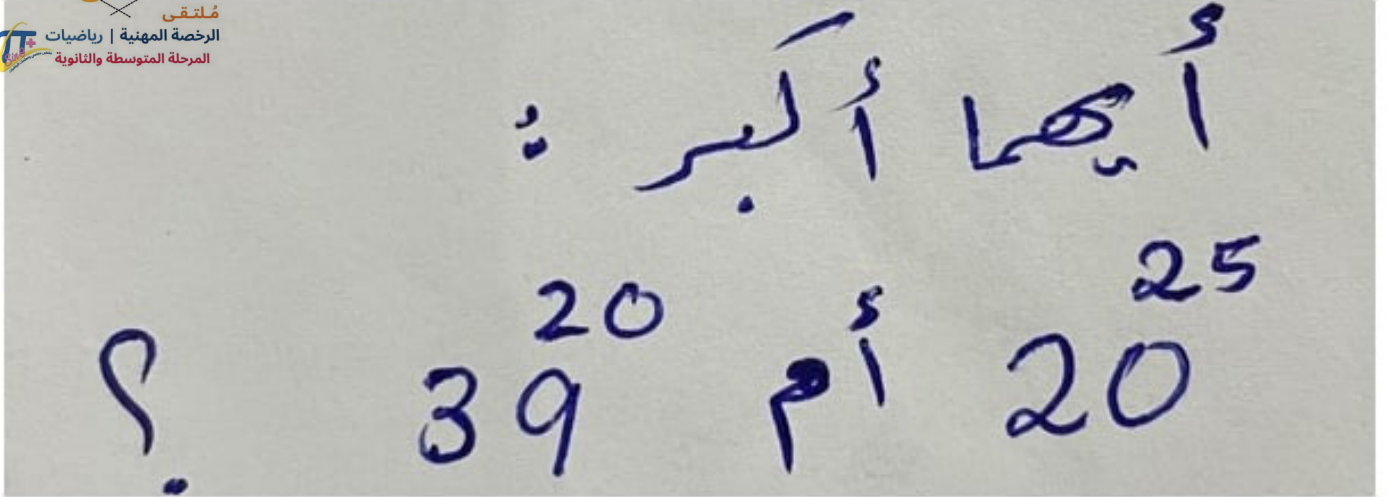 مُلتقى
الرخصة المهنية | رياضيات
المرحلة المتوسطة والثانوية
أيهما أكبر :
20^25 أم 39^20 ؟